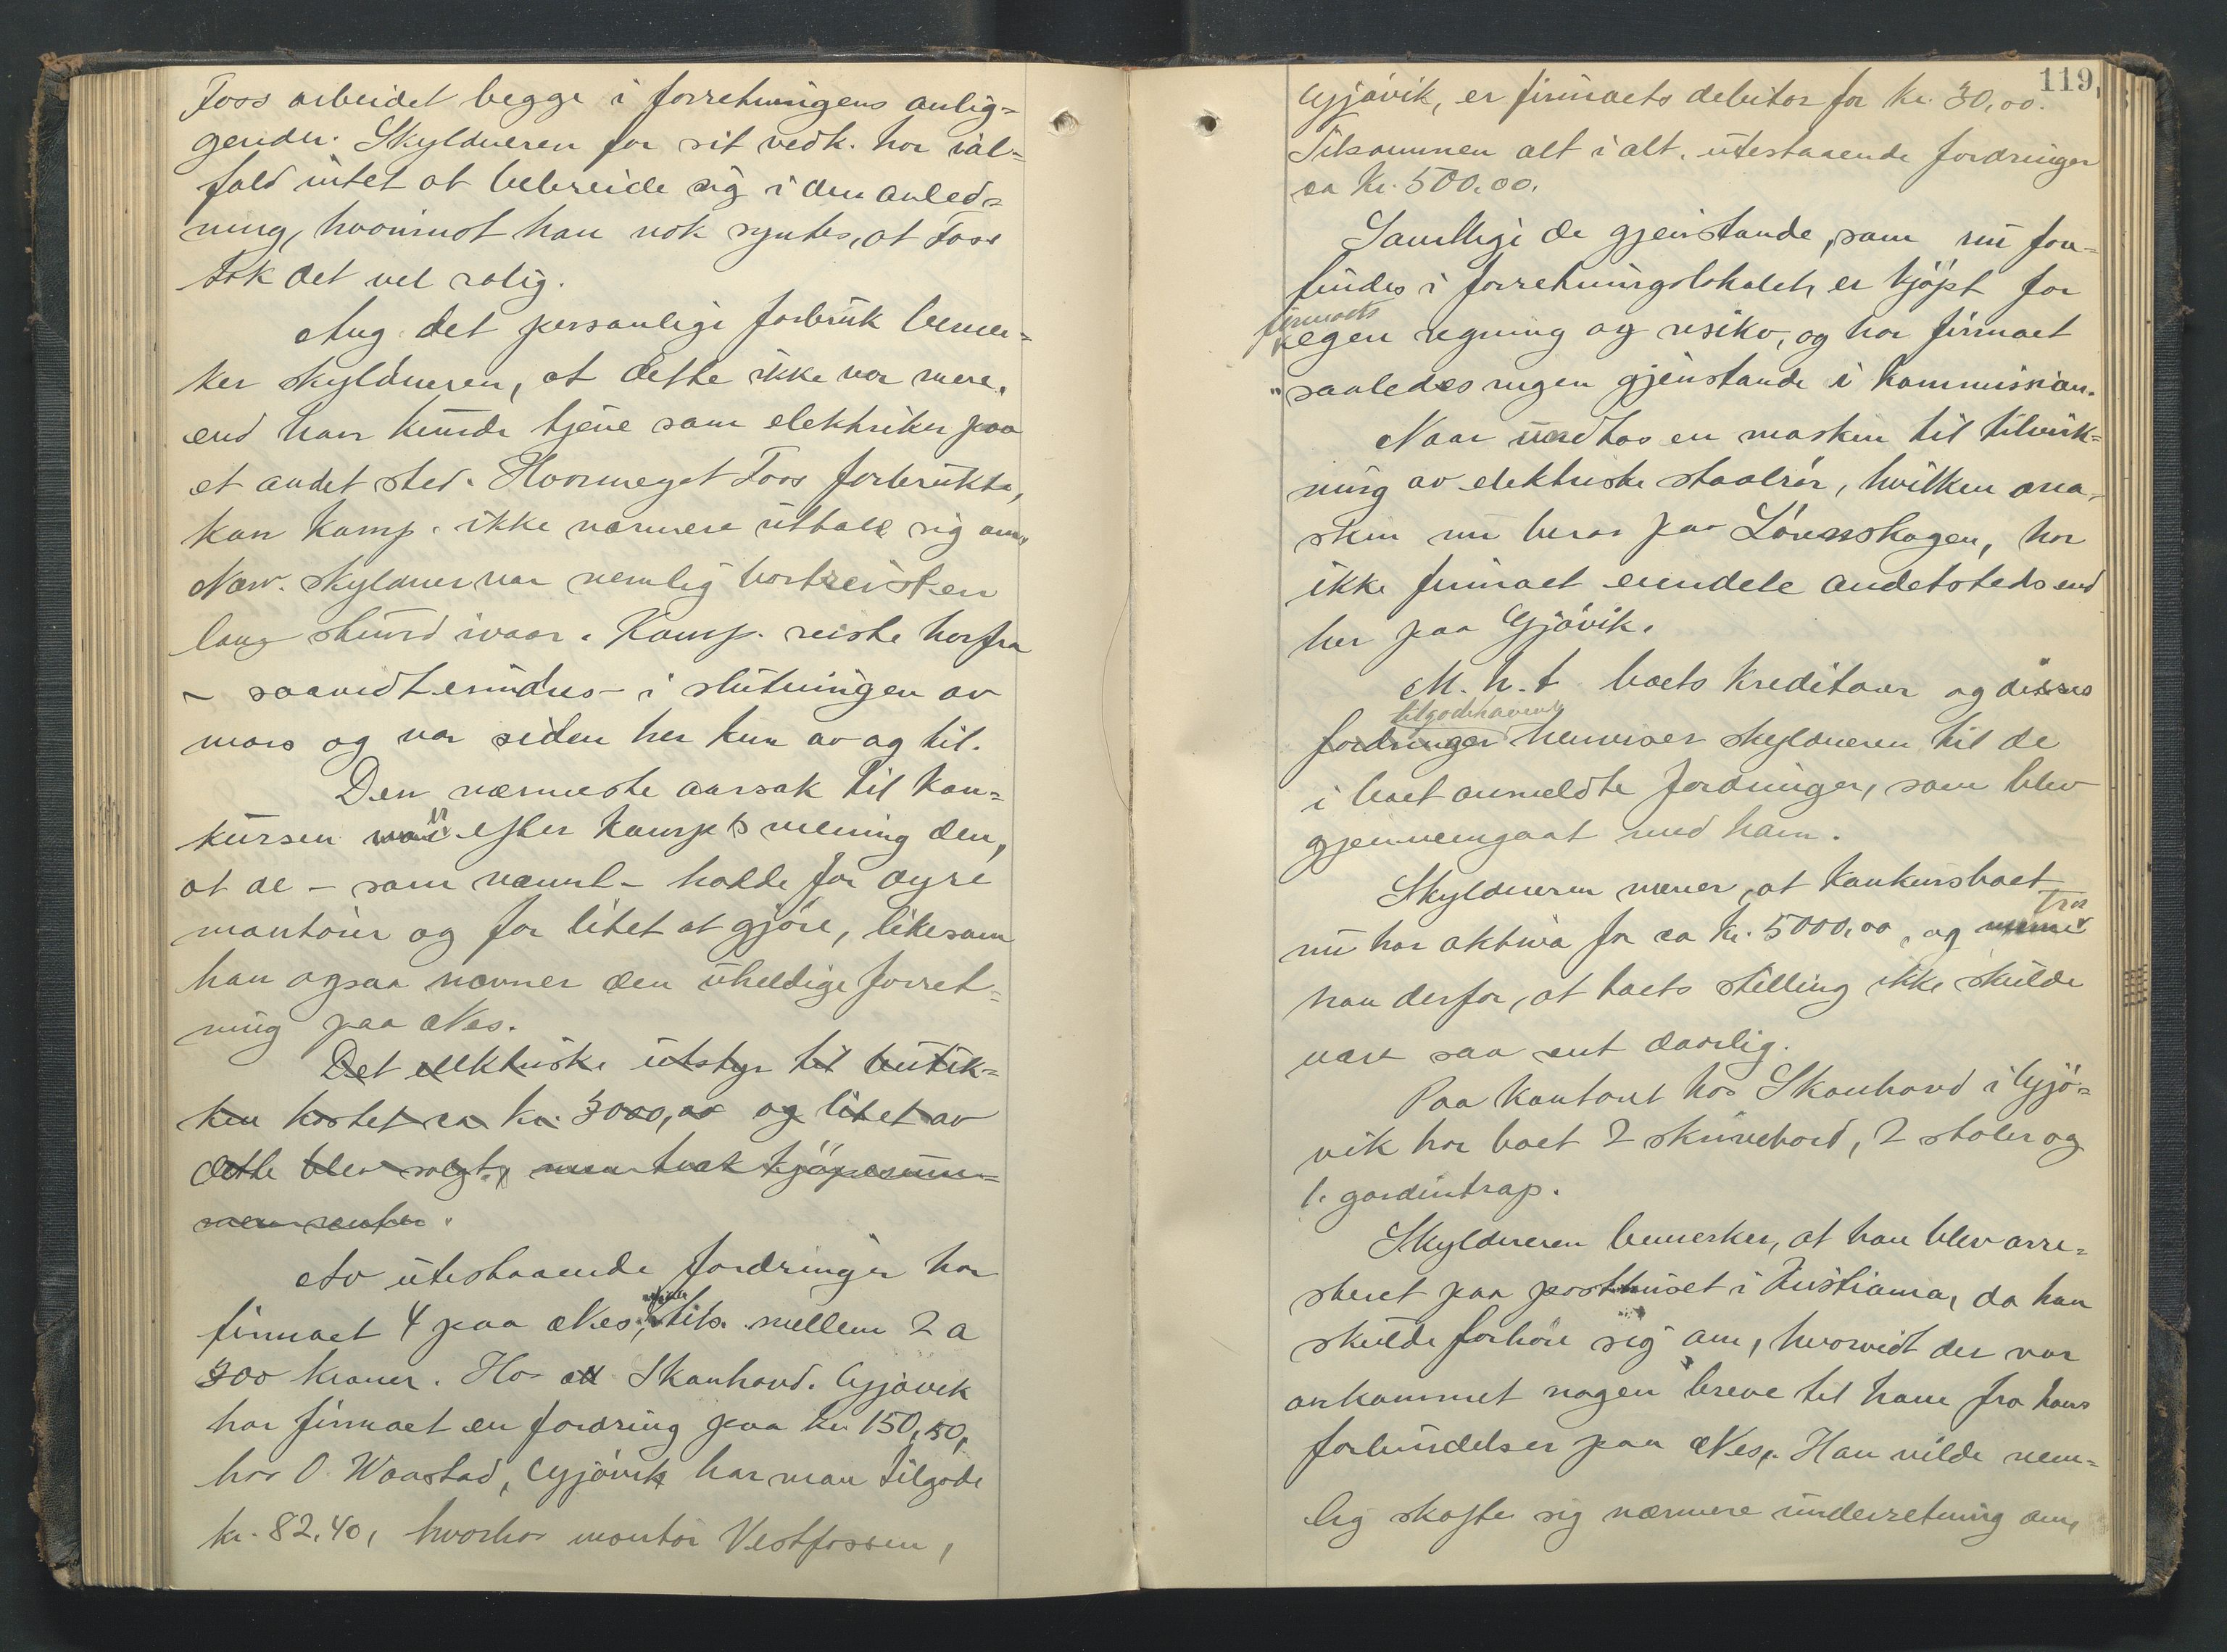 Foss arbeidet begge i forretningens anlig-
gender. Skyldneren for sit vedk. har ial-
fald intet at bebreide sig i den anled-
ning, hvorimot han nok syntes, at Foss
tok det vel rolig.
Ang. det personlige forbruk bemer-
ker skyldneren, at dette ikke var mere,
end han kunde tjene som elektriker paa
et andet sted. Hvormeget Foss forbrukte,
kan Kamp. ikke nærmere uttale sig om,
Nævn. skyldner var nemlig bortreist en
lang stund ivaar. Kamp. reiste herfra
- saavidt erindres - i slutningen av
mars og var siden her kun av og til.
Den nærmeste aarsak til kon-
kursen var efter Kamp's mening den,
at de - som nævnt - hadde for dyre
montører og for litet at gjøre, likesom
han ogsaa nævner den uheldige forret-
ning paa Nes.
Det elektriske utstyr til butik-
ken kostet ca kr. 3000,00 og litet av
dette blev solgt, men kjøpesum-
Av utestaaende fordringer har
firmaet 4 paa Nes, tils. mellem 2 a
300 kroner. Hos Skanhavd. Gjøvik
har firmaet en fordring paa kr. 150,50,
hos O. Waastad, Gjøvik har man tilgode
kr. 82,40, hvorhos montør Vestfossen,
119,
Gjøvik, er firmaets debitor for kr. 30,00.
Tilsammen alt i alt. utestaaende fordringer
ca Kr. 500,00.
Samtlige de gjenstande, som nu fore-
findes i forretningslokalet, er kjøpt for
firmaets
egen regning og risiko, og har firmaet
saaledes ingen gjenstande i kommission.
Naar undtas en maskin til tilvirk-
ning av elektriske staalrør, hvilken ma-
skin nu beror paa Lørenskogen, har
ikke firmaet eiendele andetsteds end
her paa Gjøvik.
M. h. t boets kreditorer og disses
tilgodehavende
fordringer henviser skyldneren til de
i boet anmeldte fordringer, som blev
gjennemgaat med ham.
Skyldneren mener, at konkursboet
tror
nu har aktiva for ca kr. 5000,00, og mener
han derfor, at boets stilling ikke skulde
være saa rent daarlig.
Paa kontoret hos Skanhavd i Gjø-
vik har boet 2 skrivebord, 2 stoler og
1. gardintrap.
Skyldneren bemerker, at han blev arre-
steret paa posthuset i Kristiania, da han
skulde forhøre sig om, hvorvidt der var
ankommet nogen breve til ham fra hans
forbindelser paa Nes. Han vilde nem-
lig skaffe sig nærmere underretning om,